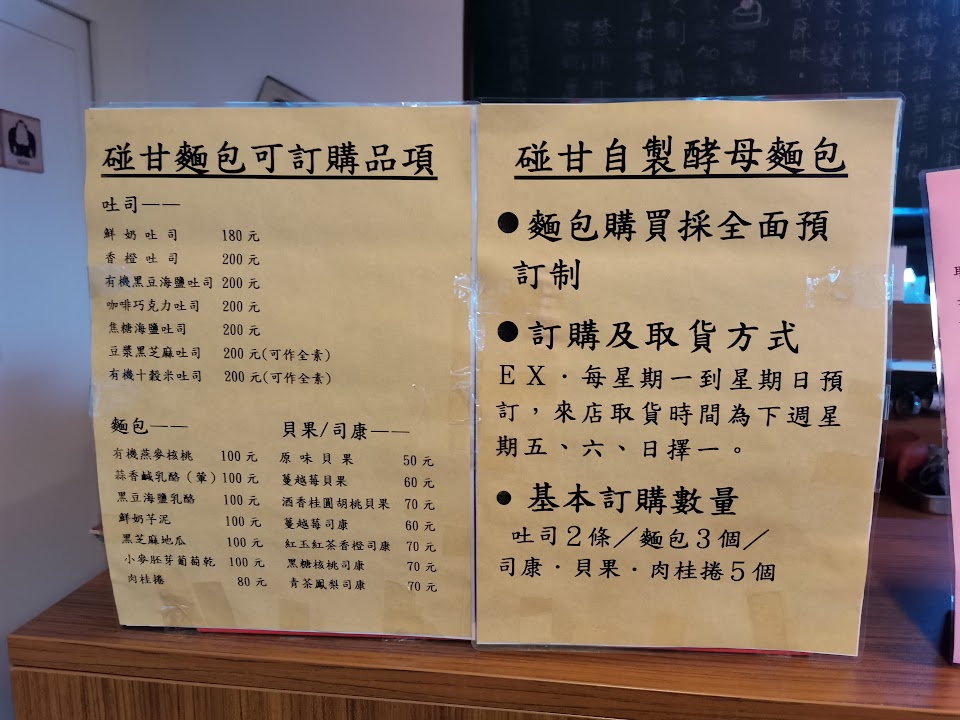 碰甘麵包可訂購品項
吐司——
鮮奶吐司 180元
香橙吐司 200元
有機黑豆海鹽吐司 200元
咖啡巧克力吐司 200元
焦糖海鹽吐司 200元
豆漿黑芝麻吐司 200元(可作全素)
有機十穀米吐司 200元(可作全素)
麵包——
有機燕麥核桃 100元
蒜香鹹乳酪(葷) 100元
黑豆海鹽乳酪 100元
鮮奶芋泥 100元
黑芝麻地瓜 100元
小麥胚芽葡萄乾 100元
肉桂捲 80元
貝果/司康——
原味貝果 50元
蔓越莓貝果 60元
酒香桂圓胡桃貝果 70元
蔓越莓司康 60元
紅玉紅茶香橙司康 70元
黑糖核桃司康 70元
青茶鳳梨司康 70元
碰甘自製酵母麵包
●麵包購買採全面預
訂制
●訂購及取貨方式
EX.每星期一到星期日預
訂,來店取貨時間為下週星
期五、六、日擇一。
●基本訂購數量
吐司2條/麵包3個/
司康.貝果.肉桂捲5個